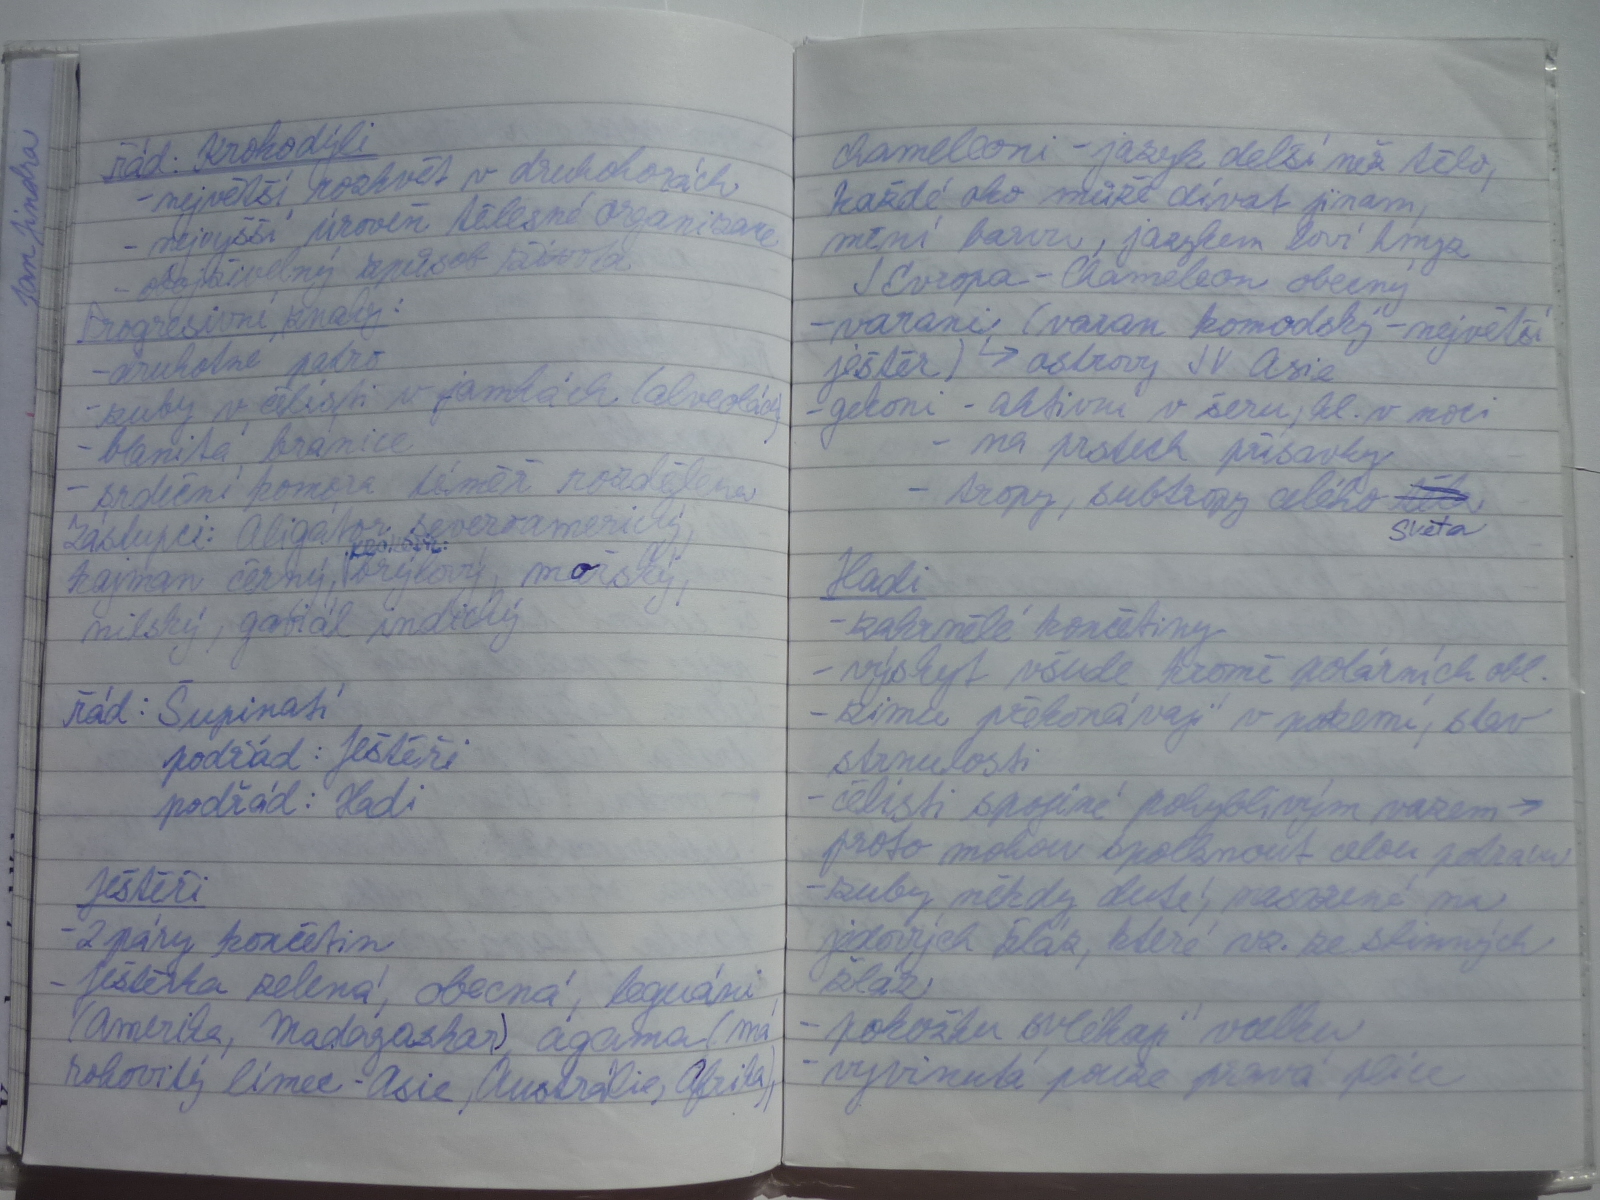 Jan Jindra
řád: Krokodýli
- největší rozkvět v druhohorách
- nejvyšší úroveň tělesné organizace
- obojživelný způsob života
Progresivní znaky:
- druhotné patro
- zuby v čelisti v jamkách (alveolách)
- blanitá bránice
- srdeční komora téměř rozdělena
Zástupci: Aligátor severoamerický,
krokodýl:
kajman černý, brýlový, mořský,
nilský, gaviál indický
řád: Šupinatí
podřád: Ještěři
podřád: Hadi
Ještěři
- 2 páry končetin
- Ještěrka zelená, obecná, leguáni
(Amerika, Madagaskar) agama (má
rohovitý límec - Asie, Austrálie, Afrika),
chameleoni - jazyk delší než tělo,
každé oko může dívat jinam,
mění barvu, jazykem loví hmyz
J Evropa - Chameleon obecný
- varani (varan komodský - největší
ještěr) ↳ ostrovy JV Asie
- gekoni - aktivní v šeru, hl. v noci
- na prstech přísavky
- tropy, subtropy celého
Světa
Hadi
- zakrnělé končetiny
- výskyt všude kromě polárních obl.
- zimu překonávají v podzemí, stav
strnulosti
- čelisti spojené pohyblivým vazem →
proto mohou spolknout celou potravu
- zuby někdy duté, nasazené na
jedových žláz, které vz. ze slinných
žláz
- pokožku svlékají vcelku
- vyvinutá pouze pravá plíce